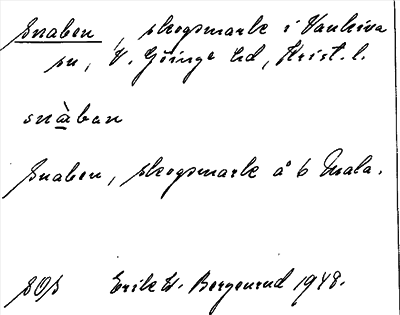 Snaben, skogsmark i Vankiva
sn, V. Göinge hd, Krist. l.
snàban
Snaben, skogsmark å 6 Mala.
SOS Erik W. Bergenrud 1948.